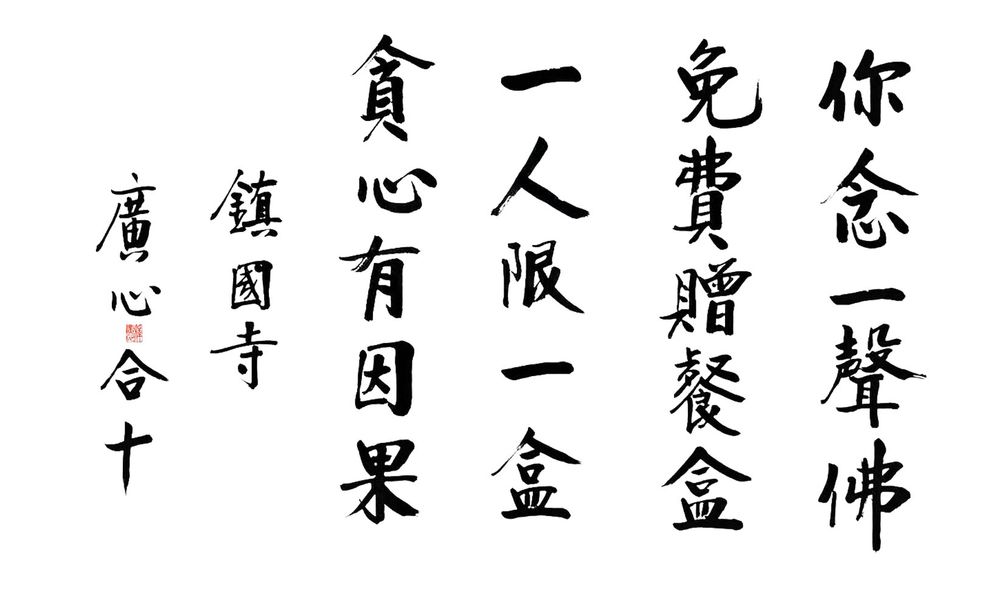 你念一聲佛
免費贈餐盒
一人限一盒
貪心有因果
鎮國寺
廣心合十